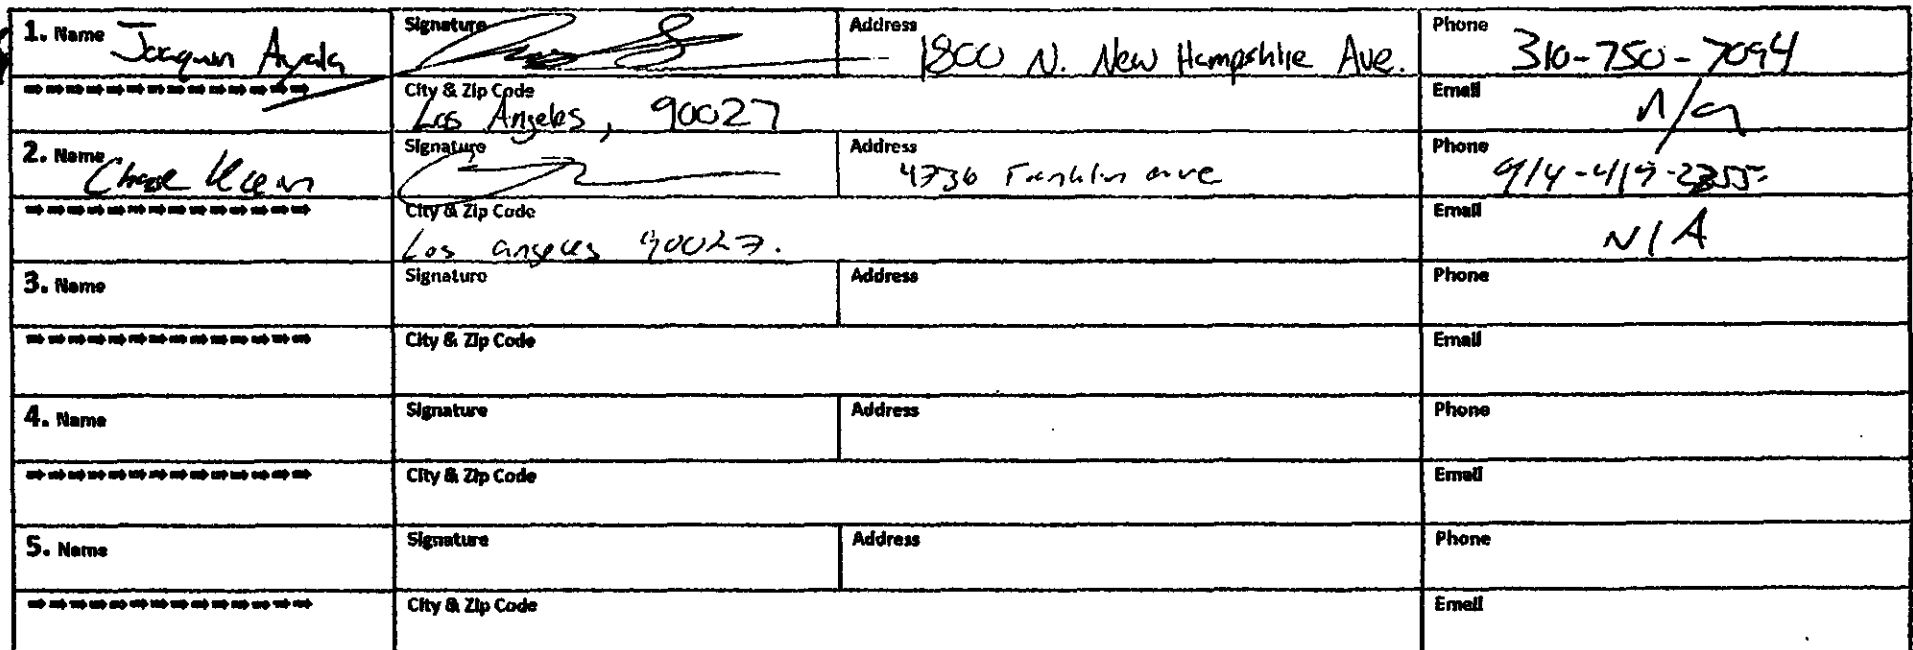 1. Name Joaquin Ayala Signature Address 1800 N. New Hampshire Ave. Phone 310-750-7094
City & Zip Code Los Angeles, 90027 Email n/a
2. Name Chase Signature Address 4736 Franklin ave Phone 914-419-2355
City & Zip Code Los angeles 90027. Email N/A
3. Name Signature Address Phone
City & Zip Code Email
4. Name Signature Address Phone
City & Zip Code Email
5. Name Signature Address Phone
City & Zip Code Email